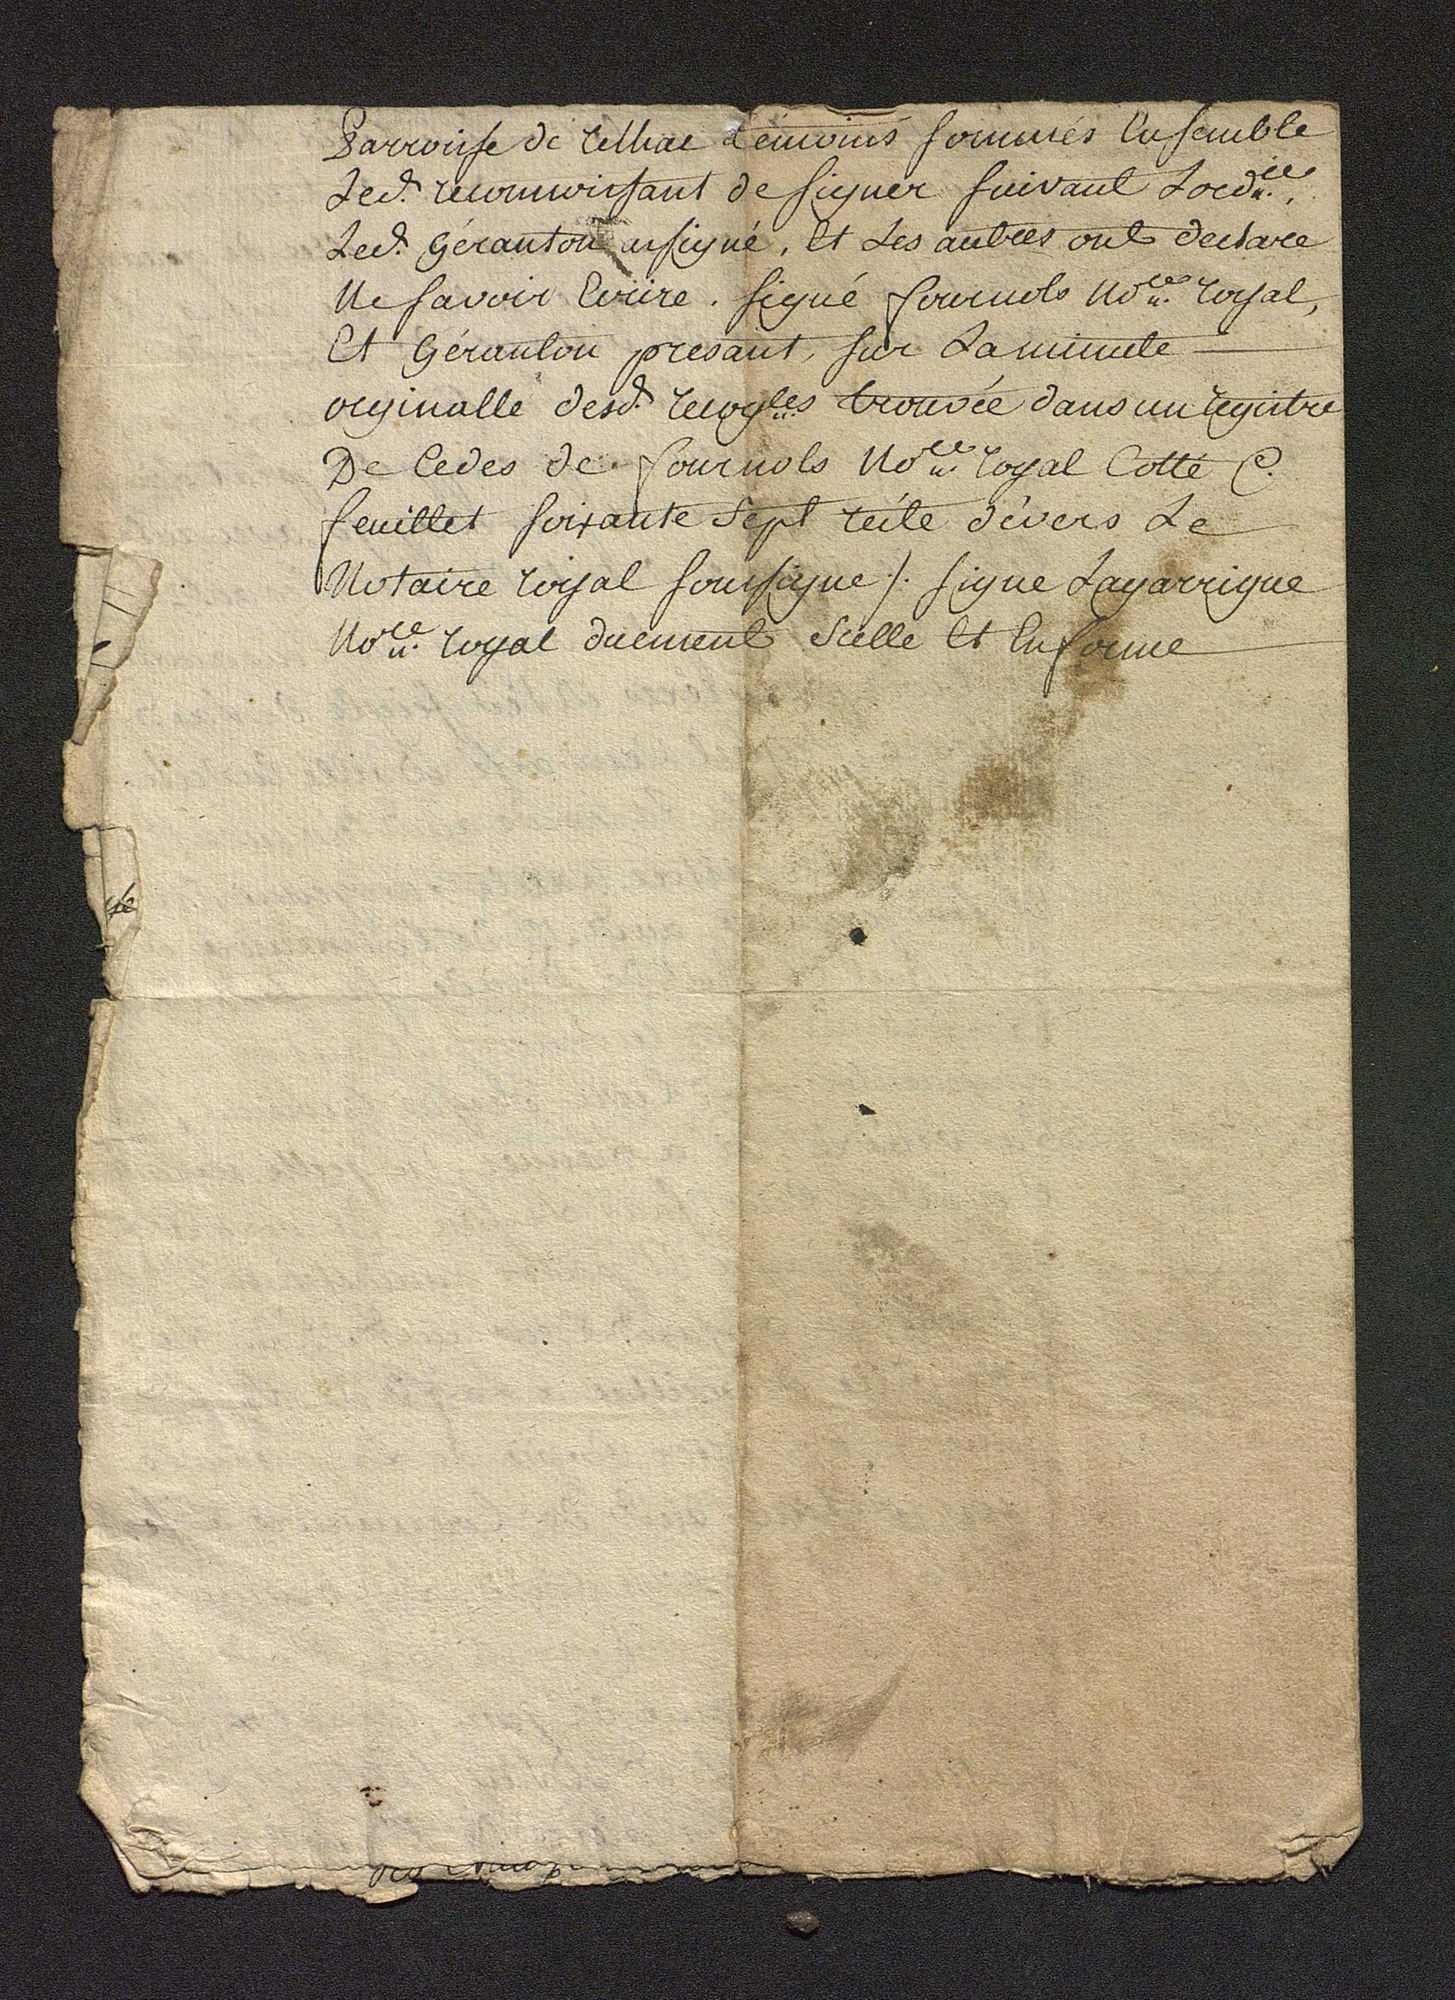 Parroisse de relhac temoins sommés Ensemble
Led. reconnoissant de signer suivant Lordce.
Led. Géranton asigné, Et Les autres ont declaré
Ne savoir Ecrire. signé fournols Nore. royal,
Et Géranton presant, sur La minute
orginalle desd. recogces trouvée dans un registre
De Cedes de fournols Nore. royal Cotté C.
feuillet soixante sept reste dévers Le
Notaire royal soussigné /. signé Lagarrigue
Nore. royal duement scellé Et En forme